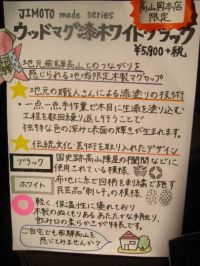 高山岡本店
限定
JIMOTO made series
ウッドマグ漆ホワイト・ブラック
¥5,900+税
地元飛騨高山とのつながりを
感じられる地域限定木製マグカップ
地元の職人さんによる漆塗りの技術
・一点一点手作業で木目に生漆を塗り込む
工程を数回繰り返し行うことで
独特な色の深みと表面の輝きが生まれます。
伝統文化、芸術を取り入れたデザイン
ブラック
国史跡高山陣屋の欄間などに
使用されている模様
ホワイト
布地に糸で図柄を刺繍で施す
民芸品「刺し子」の模様
軽く、保温性に優れており
木製のぬくもりあるあたたかな手触り、
飲み口の柔らかさが特長です。
ご自宅でも飛騨高山を
感じてみませんか?